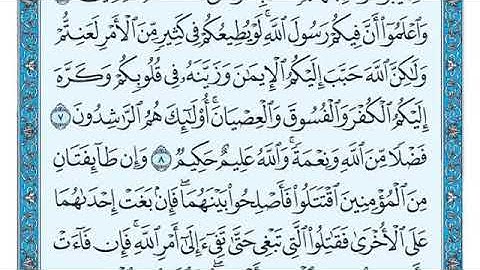 وَٱعۡلَمُوٓاْ أَنَّ فِيكُمۡ رَسُولَ ٱللَّهِۚ لَوۡ يُطِيعُكُمۡ فِي كَثِيرٖ مِّنَ ٱلۡأَمۡرِ لَعَنِتُّمۡ
وَلَٰكِنَّ ٱللَّهَ حَبَّبَ إِلَيۡكُمُ ٱلۡإِيمَٰنَ وَزَيَّنَهُۥ فِي قُلُوبِكُمۡ وَكَرَّهَ
إِلَيۡكُمُ ٱلۡكُفۡرَ وَٱلۡفُسُوقَ وَٱلۡعِصۡيَانَۚ أُوْلَٰٓئِكَ هُمُ ٱلرَّٰشِدُونَ ٧
فَضۡلٗا مِّنَ ٱللَّهِ وَنِعۡمَةٗۚ وَٱللَّهُ عَلِيمٌ حَكِيمٞ ٨ وَإِن طَآئِفَتَانِ
مِنَ ٱلۡمُؤۡمِنِينَ ٱقۡتَتَلُواْ فَأَصۡلِحُواْ بَيۡنَهُمَاۖ فَإِنۢ بَغَتۡ إِحۡدَىٰهُمَا
عَلَى ٱلۡأُخۡرَىٰ فَقَٰتِلُواْ ٱلَّتِي تَبۡغِي حَتَّىٰ تَفِيٓءَ إِلَىٰٓ أَمۡرِ ٱللَّهِۚ فَإِن فَآءَتۡ